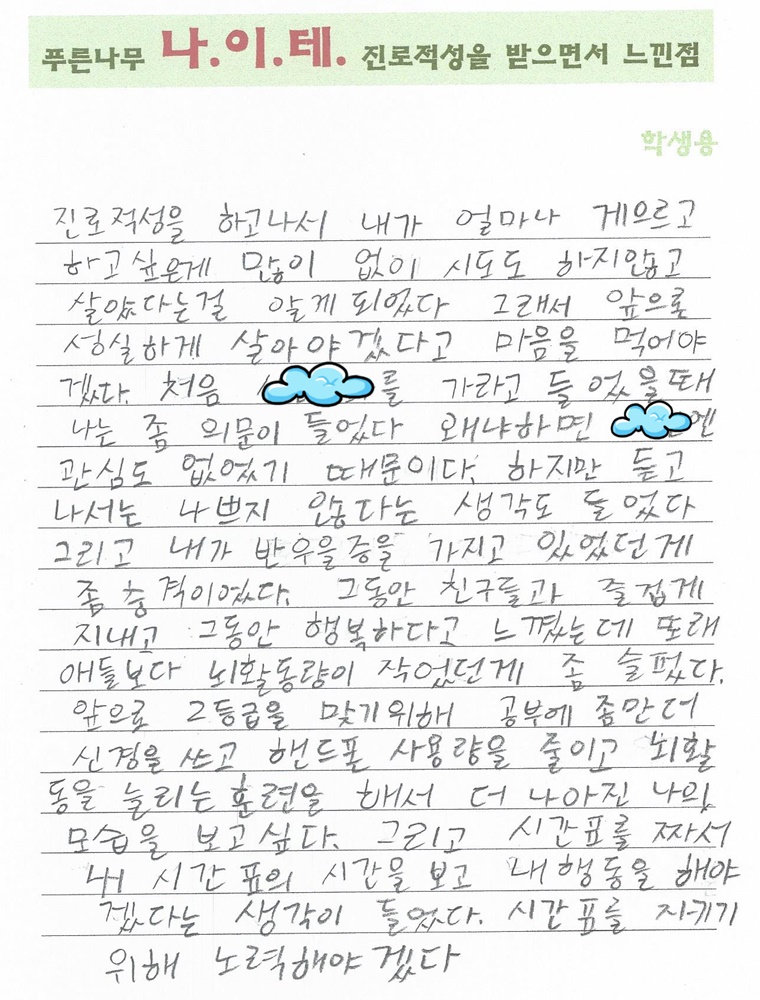 푸른나무 나.이.테. 진로적성을 받으면서 느낀점
학생용
진로적성을 하고나서 내가 얼마나 게으르고
하고싶은게 많이 없이 시도도 하지않고
살았다는걸 알게되었다 그래서 앞으론
성실하게 살아야겠다고 마음을 먹어야
겠다. 처음 를 가라고 들었을때
나는 좀 의문이 들었다 왜냐하면 엔
관심도 없었기 때문이다. 하지만 듣고
나서는 나쁘지 않다는 생각도 들었다
그리고 내가 반우울증을 가지고 있었던게
좀 충격이였다. 그동안 친구들과 즐겁게
지내고 그동안 행복하다고 느꼈는데 또래
애들보다 뇌활동량이 작았던게 좀 슬펐다.
앞으로 2등급을 맞기위해 공부에 좀만더
신경을 쓰고 핸드폰 사용량을 줄이고 뇌활
동을 늘리는 훈련을 해서 더 나아진 나의
모습을 보고싶다. 그리고 시간표를 짜서
내 시간표의 시간을 보고 내행동을 해야
겠다는 생각이 들었다. 시간표를 지키기
위해 노력해야겠다